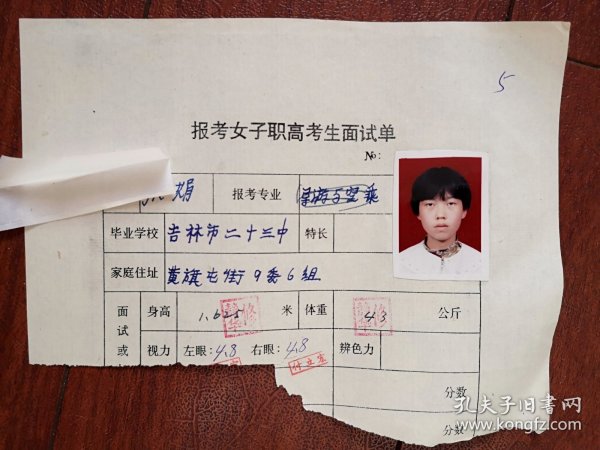 5
报考女子职高考生面试单
№:
娟 报考专业
毕业学校 吉林市二十三中 特长
家庭住址 黄旗屯街9委6组
面试或 身高 1.625 米 体重 43 公斤
视力 左眼:4.8 右眼:4.8 辨色力
分数
分数
孔夫子旧书网
www.kongfz.com